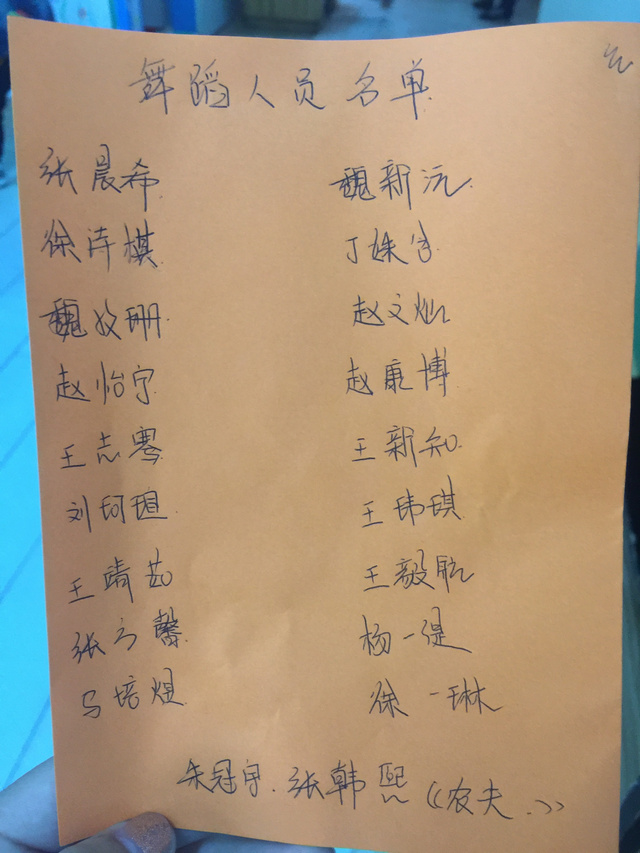 舞蹈人员名单
张晨希 魏新沅
徐诗棋 丁姝含
魏姣珊 赵文灿
赵怡宁 赵康博
王志骞 王新知
刘珂瑄 王玮琪
王靖茹 王毅航
张方馨 杨一湜
马培煜 徐一琳
朱冠宇、张韩熙《农夫》